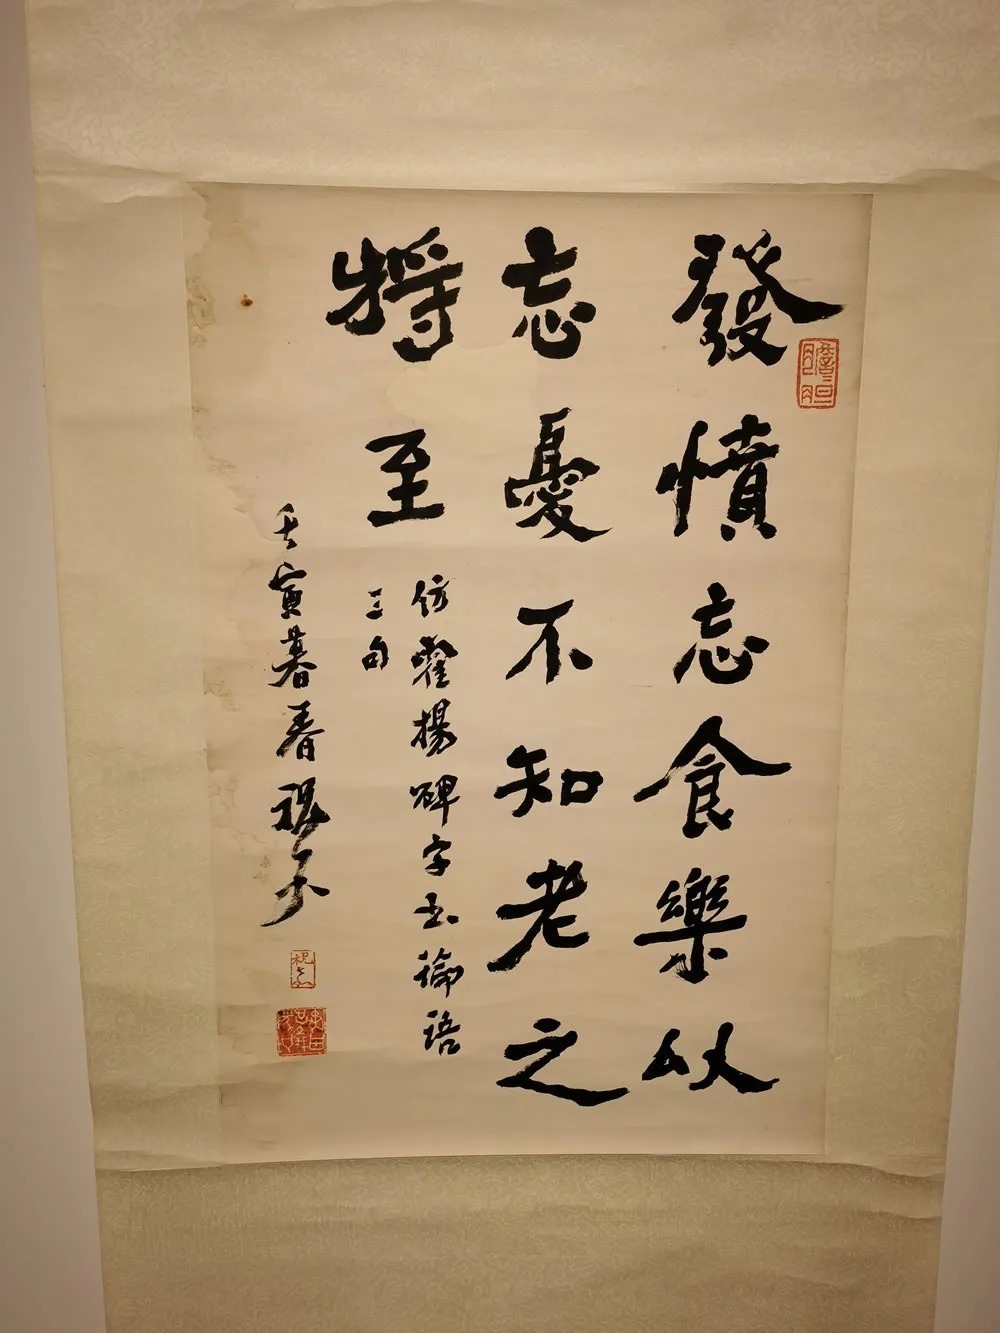 發憤忘食樂以
忘憂不知老之
將至
仿霍揚碑字書論語
三句
壬寅暮春祝嘉
祝嘉